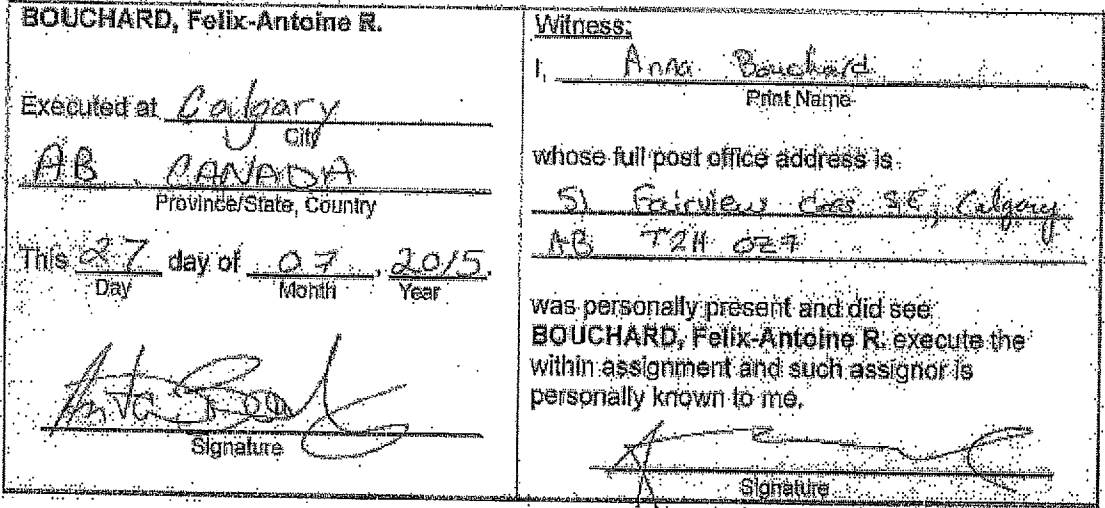 BOUCHARD, Felix-Antoine R.
Executed at Calgary
City
AB CANADA
Province/State, Country
This 27 day of 07, 2015.
Day Month Year
Signature
Witness:
I, Anna Bouchard
Print Name
whose full post office address is
51 Fairview Cres SE, Calgary
AB T2H 0Z7
was personally present and did see
BOUCHARD, Felix-Antoine R. execute the
within assignment and such assignor is
personally known to me.
Signature